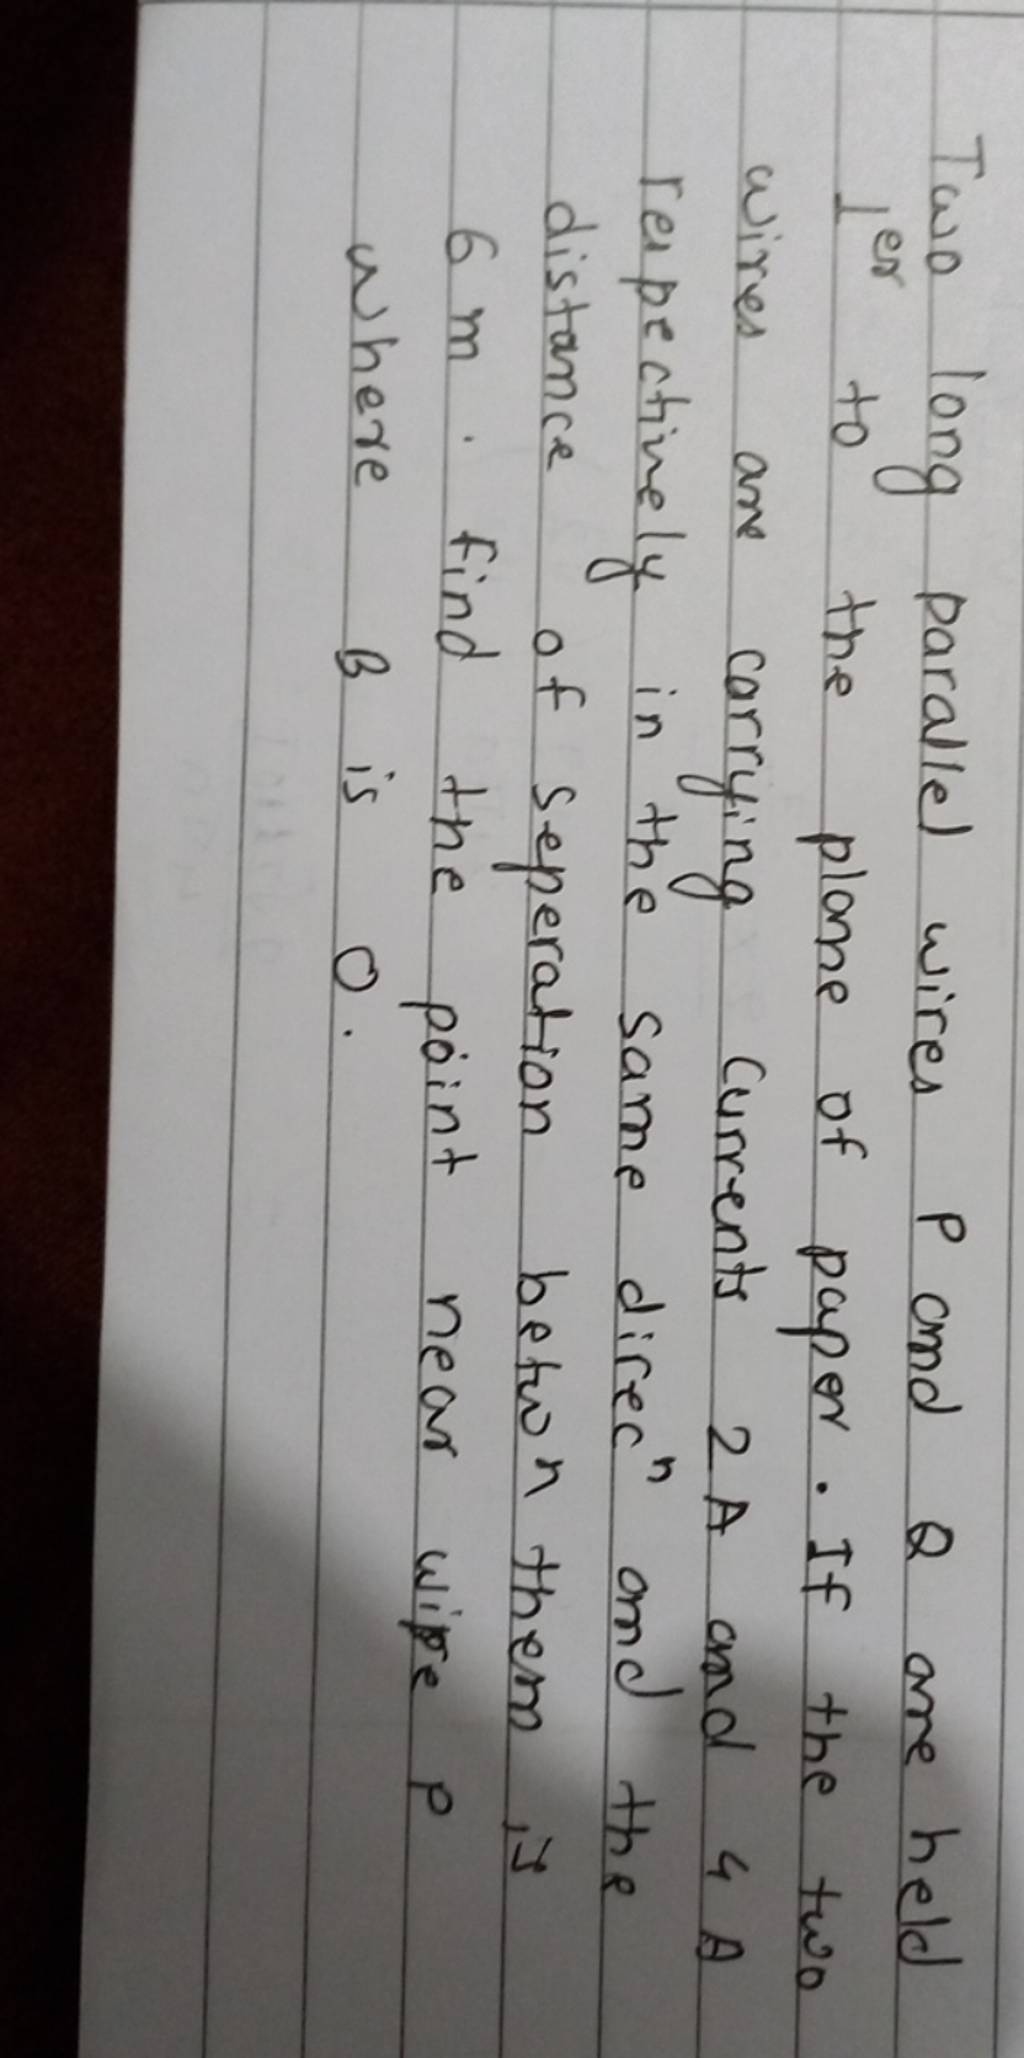 Two long parallel wires P and Q are held
⊥er to the plane of paper. If the two
wires are carrying currents 2 A and 4 A
respectively in the same direcⁿ and the
distance of seperation betwn them is
6 m. find the point near wire P
where B is 0.